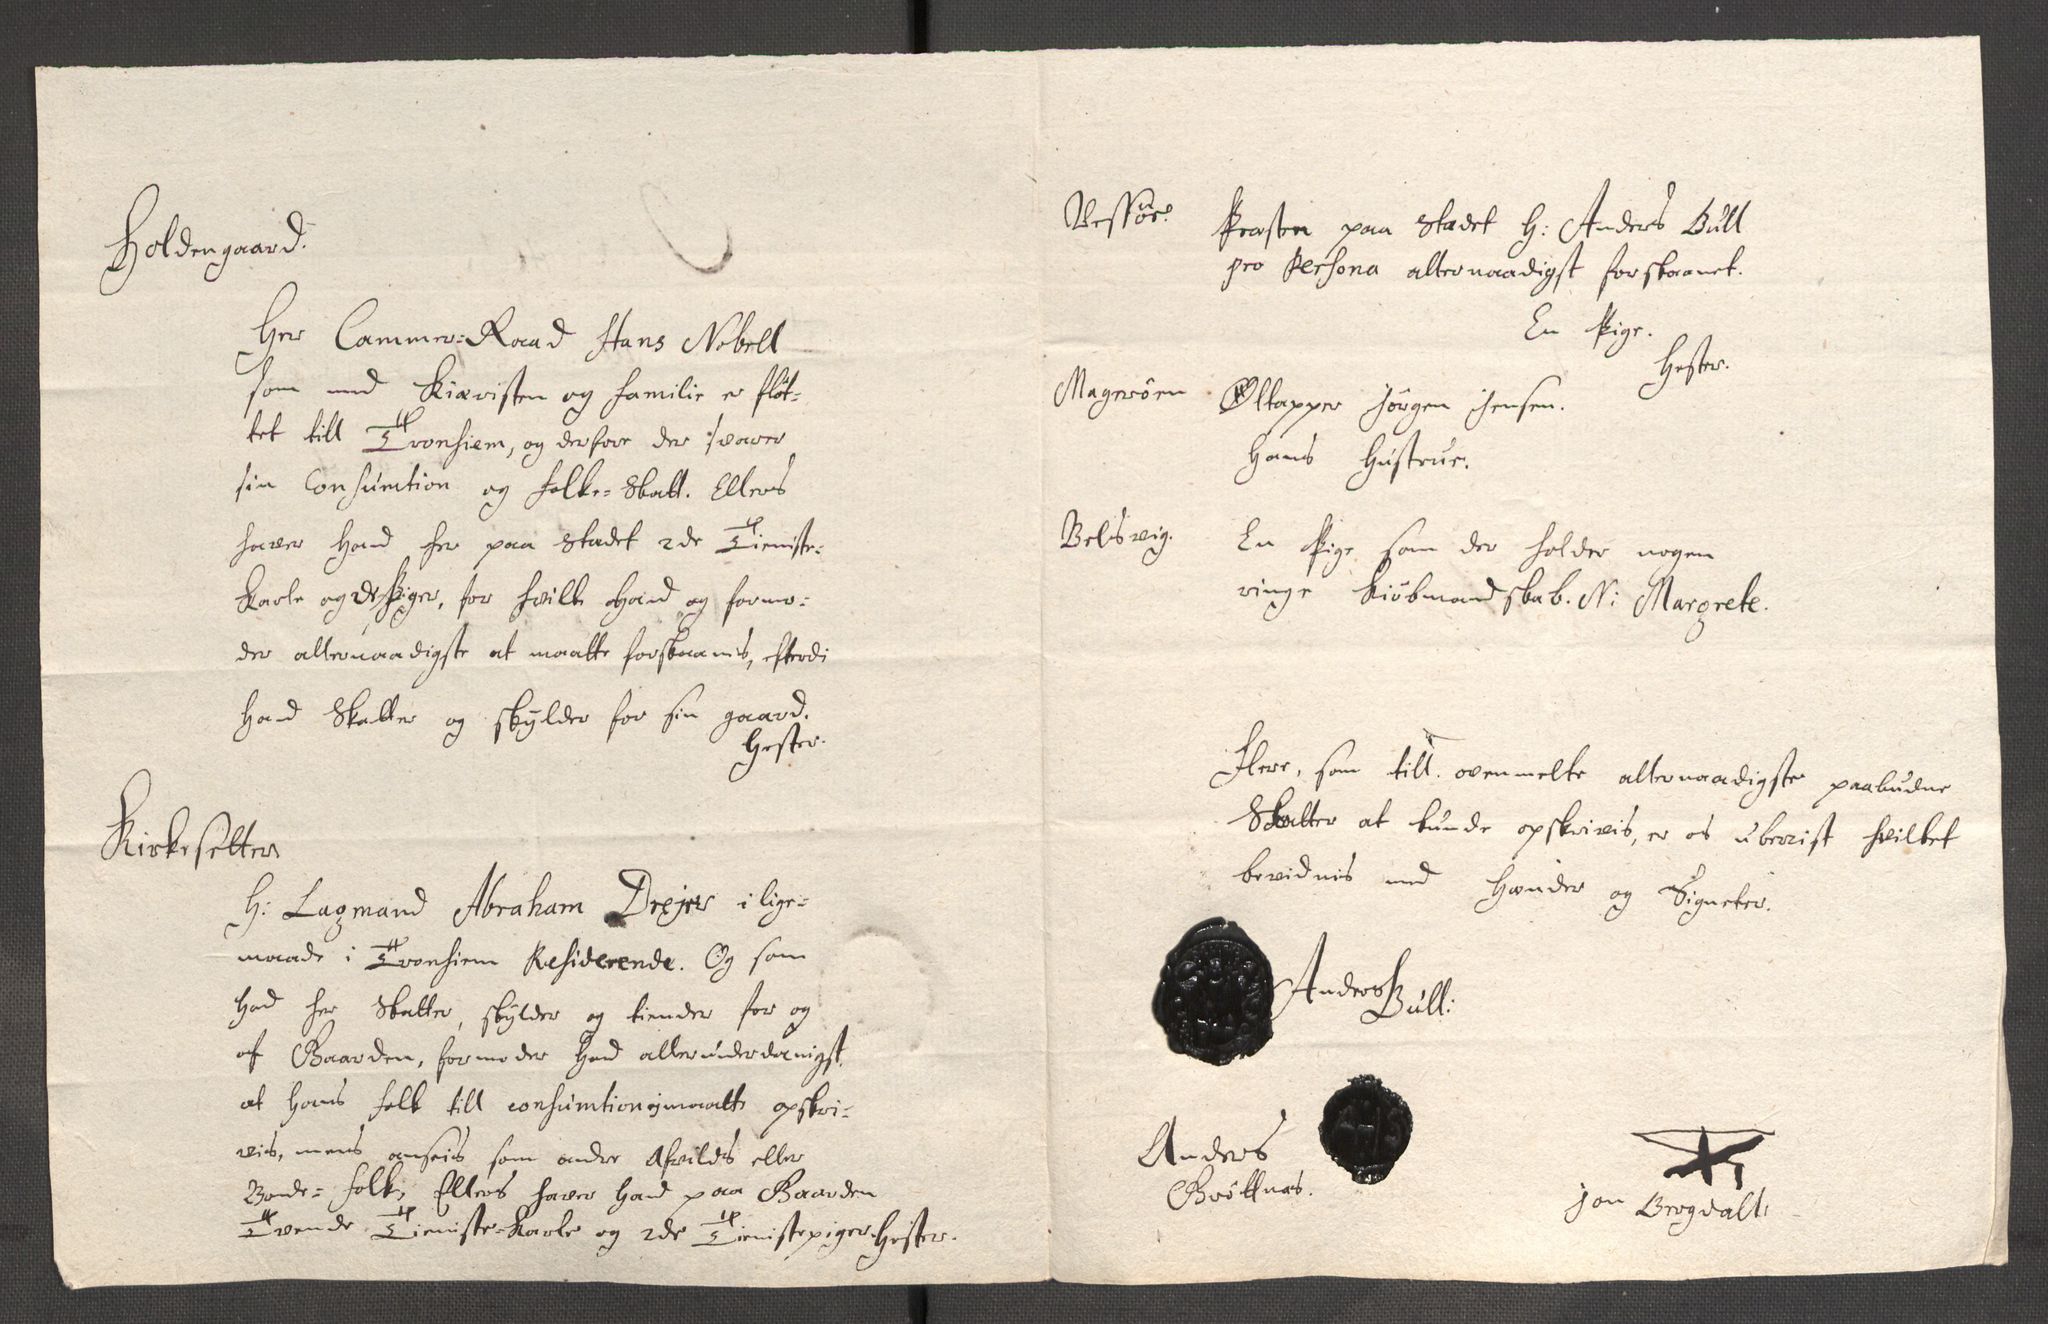 Holdengaard.
Herr Cammer-Raad Hans Nobell
som med Kiæristen og familie er fløt-
tet till Tronhiem, og derfore der svarer
sin Consumtion og folke-Skatt. Ellers
haver hand her paa Stædet 2de Tieniste-
Karle og 2de Piger, for hvilke Hand og formo-
der allernaadigste at maatte forskaanis, efterdi
hand Skatter og skylder for sin gaard.
Hester.
Kirkesetter
H: Lagmand Abraham Dreyer i lige-
maade i Tronhiem Residerende. Og som
hand her Skatter, skylder og tiender for og
af Gaarden, formoder hand allerunderdanigst
at hans folk till consumtion ej maatte opskri-
vis, mens anseis som andre Afvilds eller
Bonde-folk, Ellers haver hand paa Gaarden
Tvende Tieniste-Karle og 2de Tienistepiger. Hester.
Vessøe.
Præsten paa Stædet H: Anders Bull
pro Persona allernaadigst forskaanet.
En Pige.
Hester.
Magerøen
Øltapper Jørgen Jensen.
Hans Hustrue.
Belsvig.
En Pige som der holder nogen
ringe Kiøbmandskab. N: Margrete.
Flere, som till ovenmelte allernaadigste paabudne
Skatter at kunde opskrivis, er os ubevist hvilket
bevidnis med Hænder og Signeter.
Anders Bull:
AHS
Anders
Grøttnas.
Jon Bergdall: